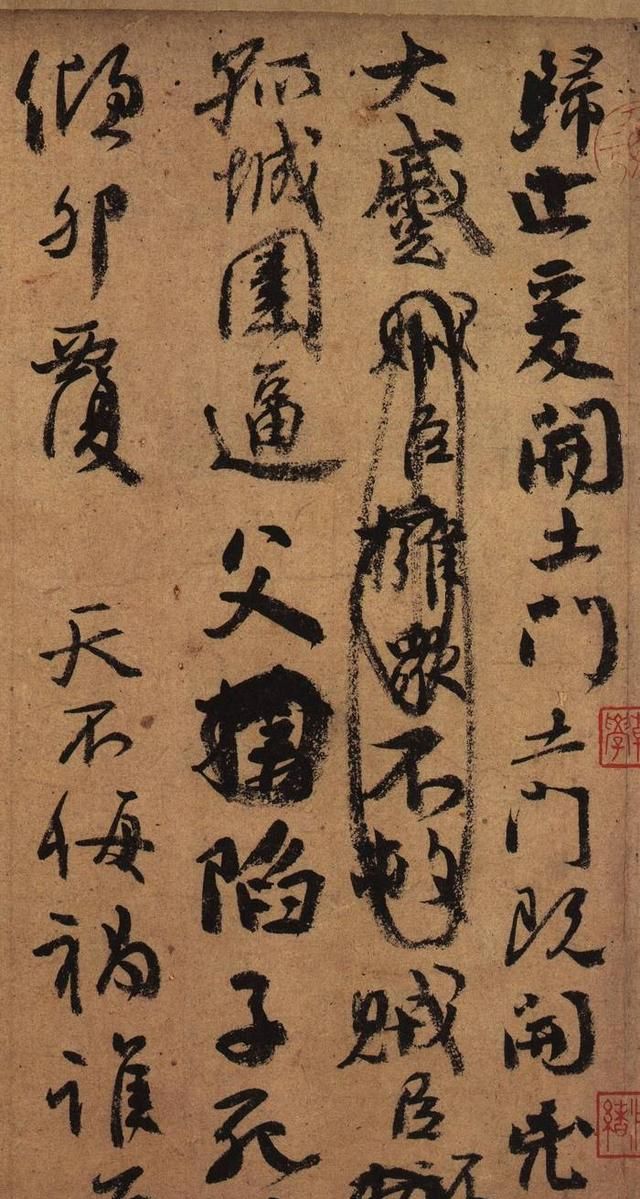 歸止爰開土門土門既開凶
大蹙賊臣擁衆不救賊臣
孤城圍逼父陷子死
傾卵覆天不悔禍誰